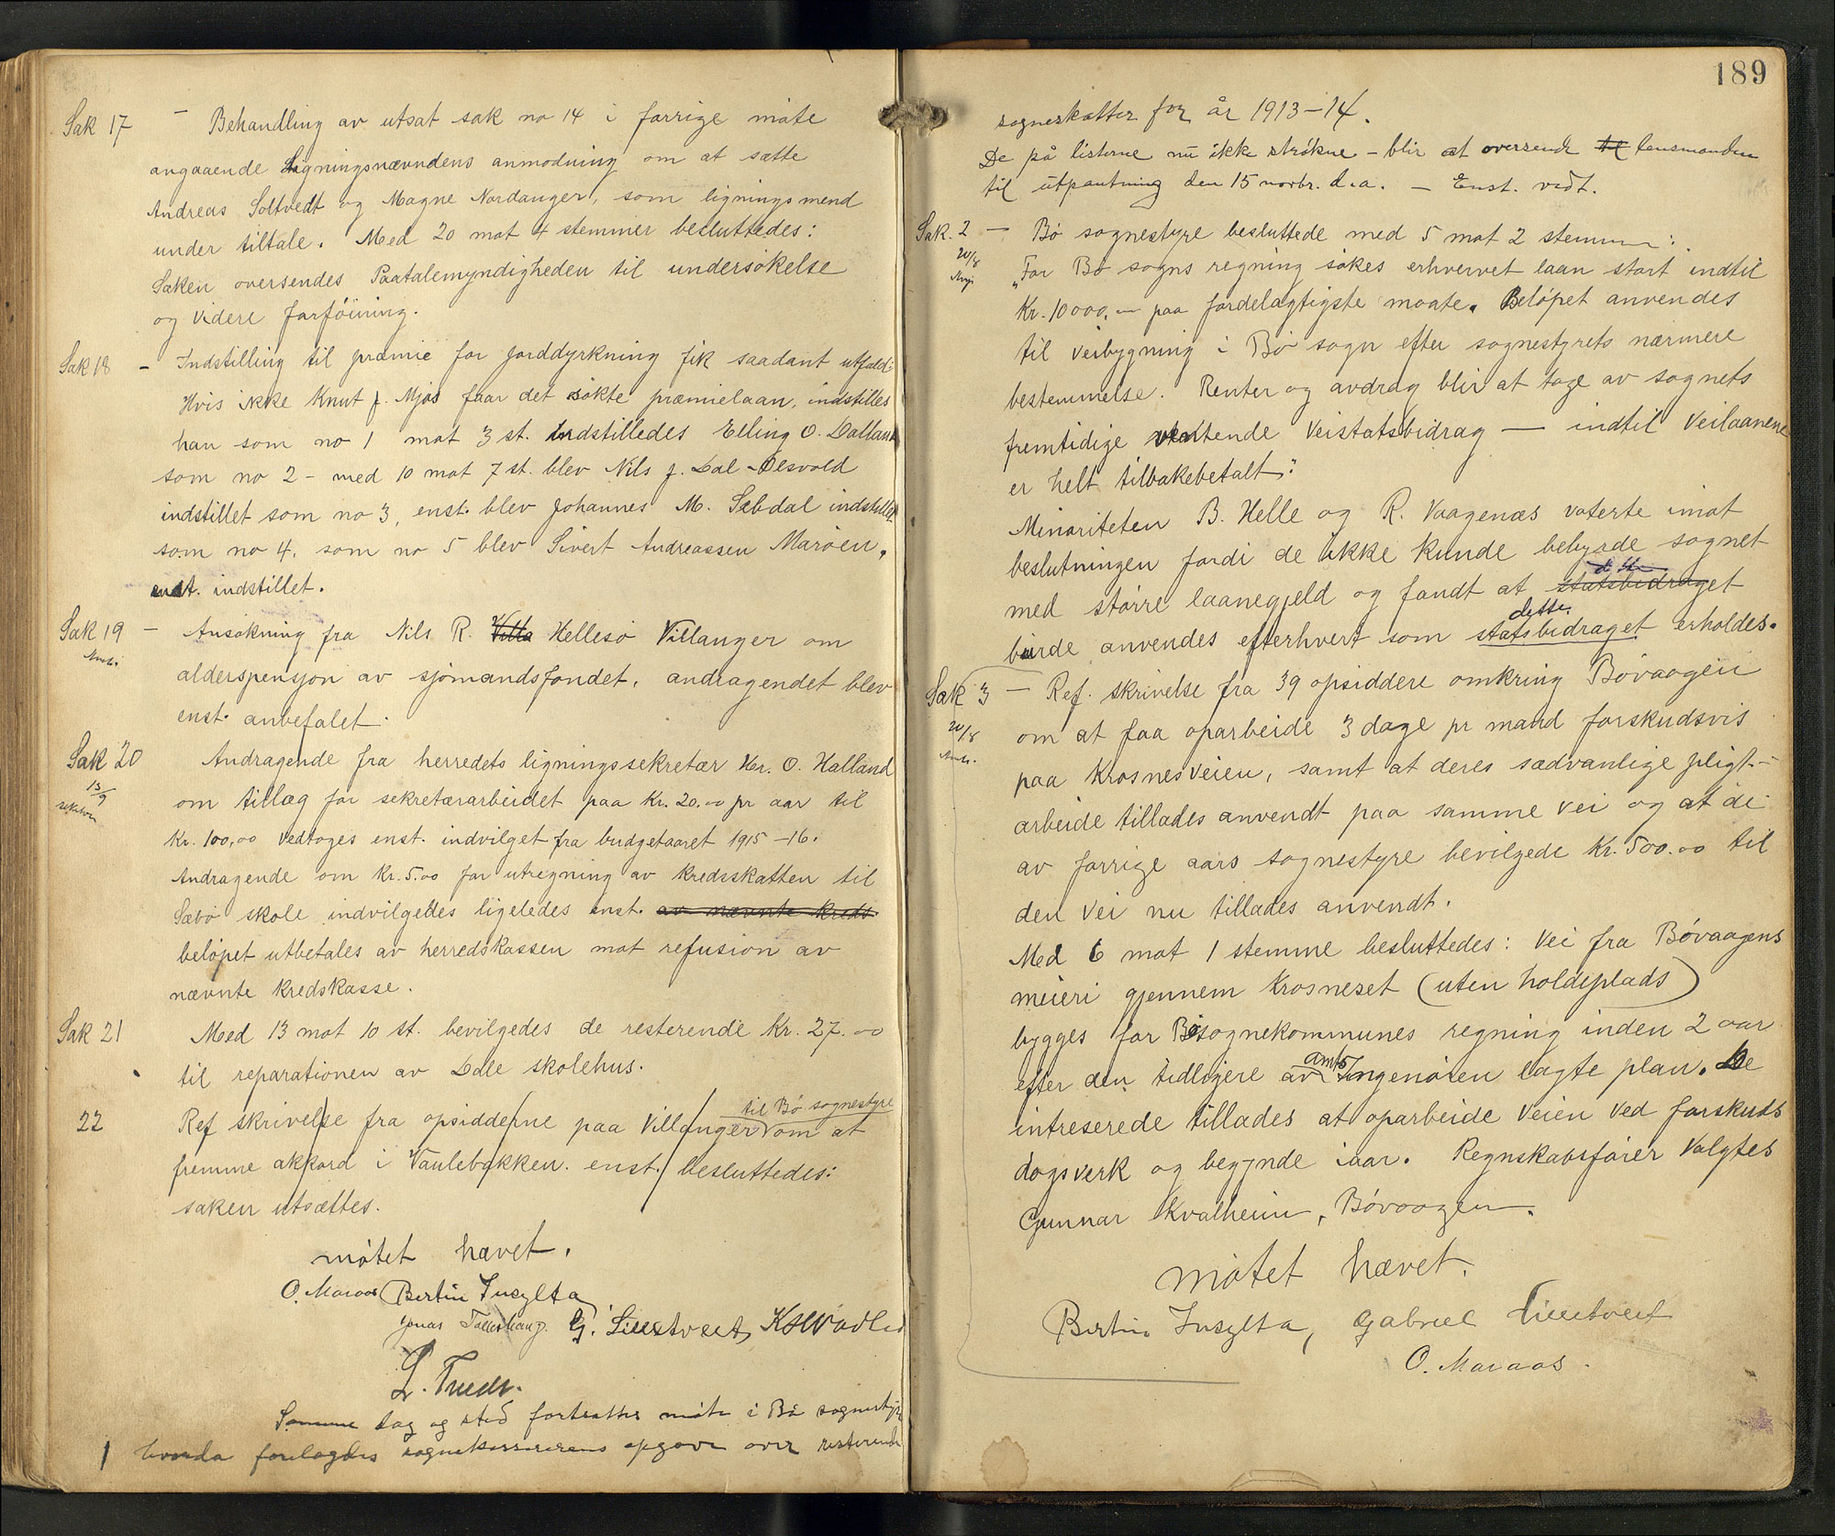 Sak 17 — Behandling av utsat sak no 14 i forrige møte
angaaende Ligningsnævndens anmodning om at sætte
Andreas Soltvedt og Magne Nordanger, som ligningsmend
under tiltale. Med 20 mot 4 stemmer besluttedes:
Saken oversendes Paatalemyndigheden til undersøkelse
og videre forføining.
Sak 18 — Indstilling til præmie for jorddyrkning fik saadant utfald:
Hvis ikke Knut J. Mjøs faar det søkte præmielaan, indstilles
han som no 1 mot 3 st. Indstilledes Elling O. Dalland
som no 2 - med 10 mot 7 st. blev Nils J. Dal-Olsvold
indstillet som no 3, enst. blev Johannes M. Sæbdal indstillet
som no 4, som no 5 blev Sivert Andreassen Marøen,
enst. indstillet.
Sak 19 — Ansøkning fra Nils R. Villa Hellesø Villanger om
alderspensjon av sjømandsfondet, andragendet blev
enst. anbefalet.
Sak 20 Andragende fra herredets ligningssekretær Hr. O. Halland
13/9
om tillæg for sekretærarbeidet paa Kr. 20.00 pr aar til
Kr. 100,00 vedtoges enst. indvilget fra budgetaaret 1915-16.
Andragende om Kr. 5.00 for utregning av kredsskatten til
Sæbø skole indvilgedes ligeledes enst. av nævnte kreds.
beløpet utbetales av herredskassen mot refusion av
nævnte kredskasse.
Sak 21 Med 13 mot 10 st. bevilgedes de resterende Kr. 27.00
til reparationen av Dale skolehus.
til Bø sognestyre
22 Ref skrivelse fra opsidderne paa Villanger om at
fremme akkord i Vaulebakken. enst. besluttedes:
saken utsættes.
møtet hævet.
O. Maraas Bertin Tusylta
G. Lieetveit
Samme dag og sted fortsattes møte i Bø sognestyre
1 hvorda forelagdes sognekassererens opgave over resterende
189
sogneskatter for år 1913-14.
De på listerne nu ikke strøkne - blir at oversende til lensmanden
til utpantning den 15 novbr. d.a. — Enst. vedt.
Sak. 2 — Bø sognestyre besluttede med 5 mot 2 stemmer:
20/8
"For Bø sogns regning søkes erhvervet laan stort indtil
Kr. 10000,- paa fordelagtigste maate. Beløpet anvendes
til veibygning i Bø sogn efter sognestyrets nærmere
bestemmelse. Renter og avdrag blir at tage av sognets
fremtidige ventende Veistatsbidrag — indtil Veilaanene
er helt tilbakebetalt":
Minoriteten B. Helle og R. Vaagenæs voterte imot
beslutningen fordi de ikke kunde bebyrde sognet
med større laanegjeld og fandt at statsbidraget
dette
burde anvendes efterhvert som statsbidraget erholdes.
Sak 3 — Ref. skrivelse fra 39 opsiddere omkring Bøvaagen
20/8
om at faa oparbeide 3 dage pr mand forskudsvis
paa Krosnesveien, samt at deres sædvanlige pligt-
arbeide tillades anvendt paa samme vei og at de
av forrige aars sognestyre bevilgede Kr. 500.00 til
den vei nu tillades anvendt.
Med 6 mot 1 stemme besluttedes: Vei fra Bøvaagens
meieri gjennem Krosneset (uten holdeplads)
bygges for Bø sognekommunes regning inden 2 aar
amts
efter den tidligere av Ingeniøren lagte plan. De
intreserede tillades at oparbeide veien ved forskuds
dagsverk og begynde iaar. Regnskabsfører valgtes
Gunnar Kvalheim, Bøvaagen.
Møtet hævet.
Bertin Tusylta, Gabriel Lieetveit
O. Maraas.